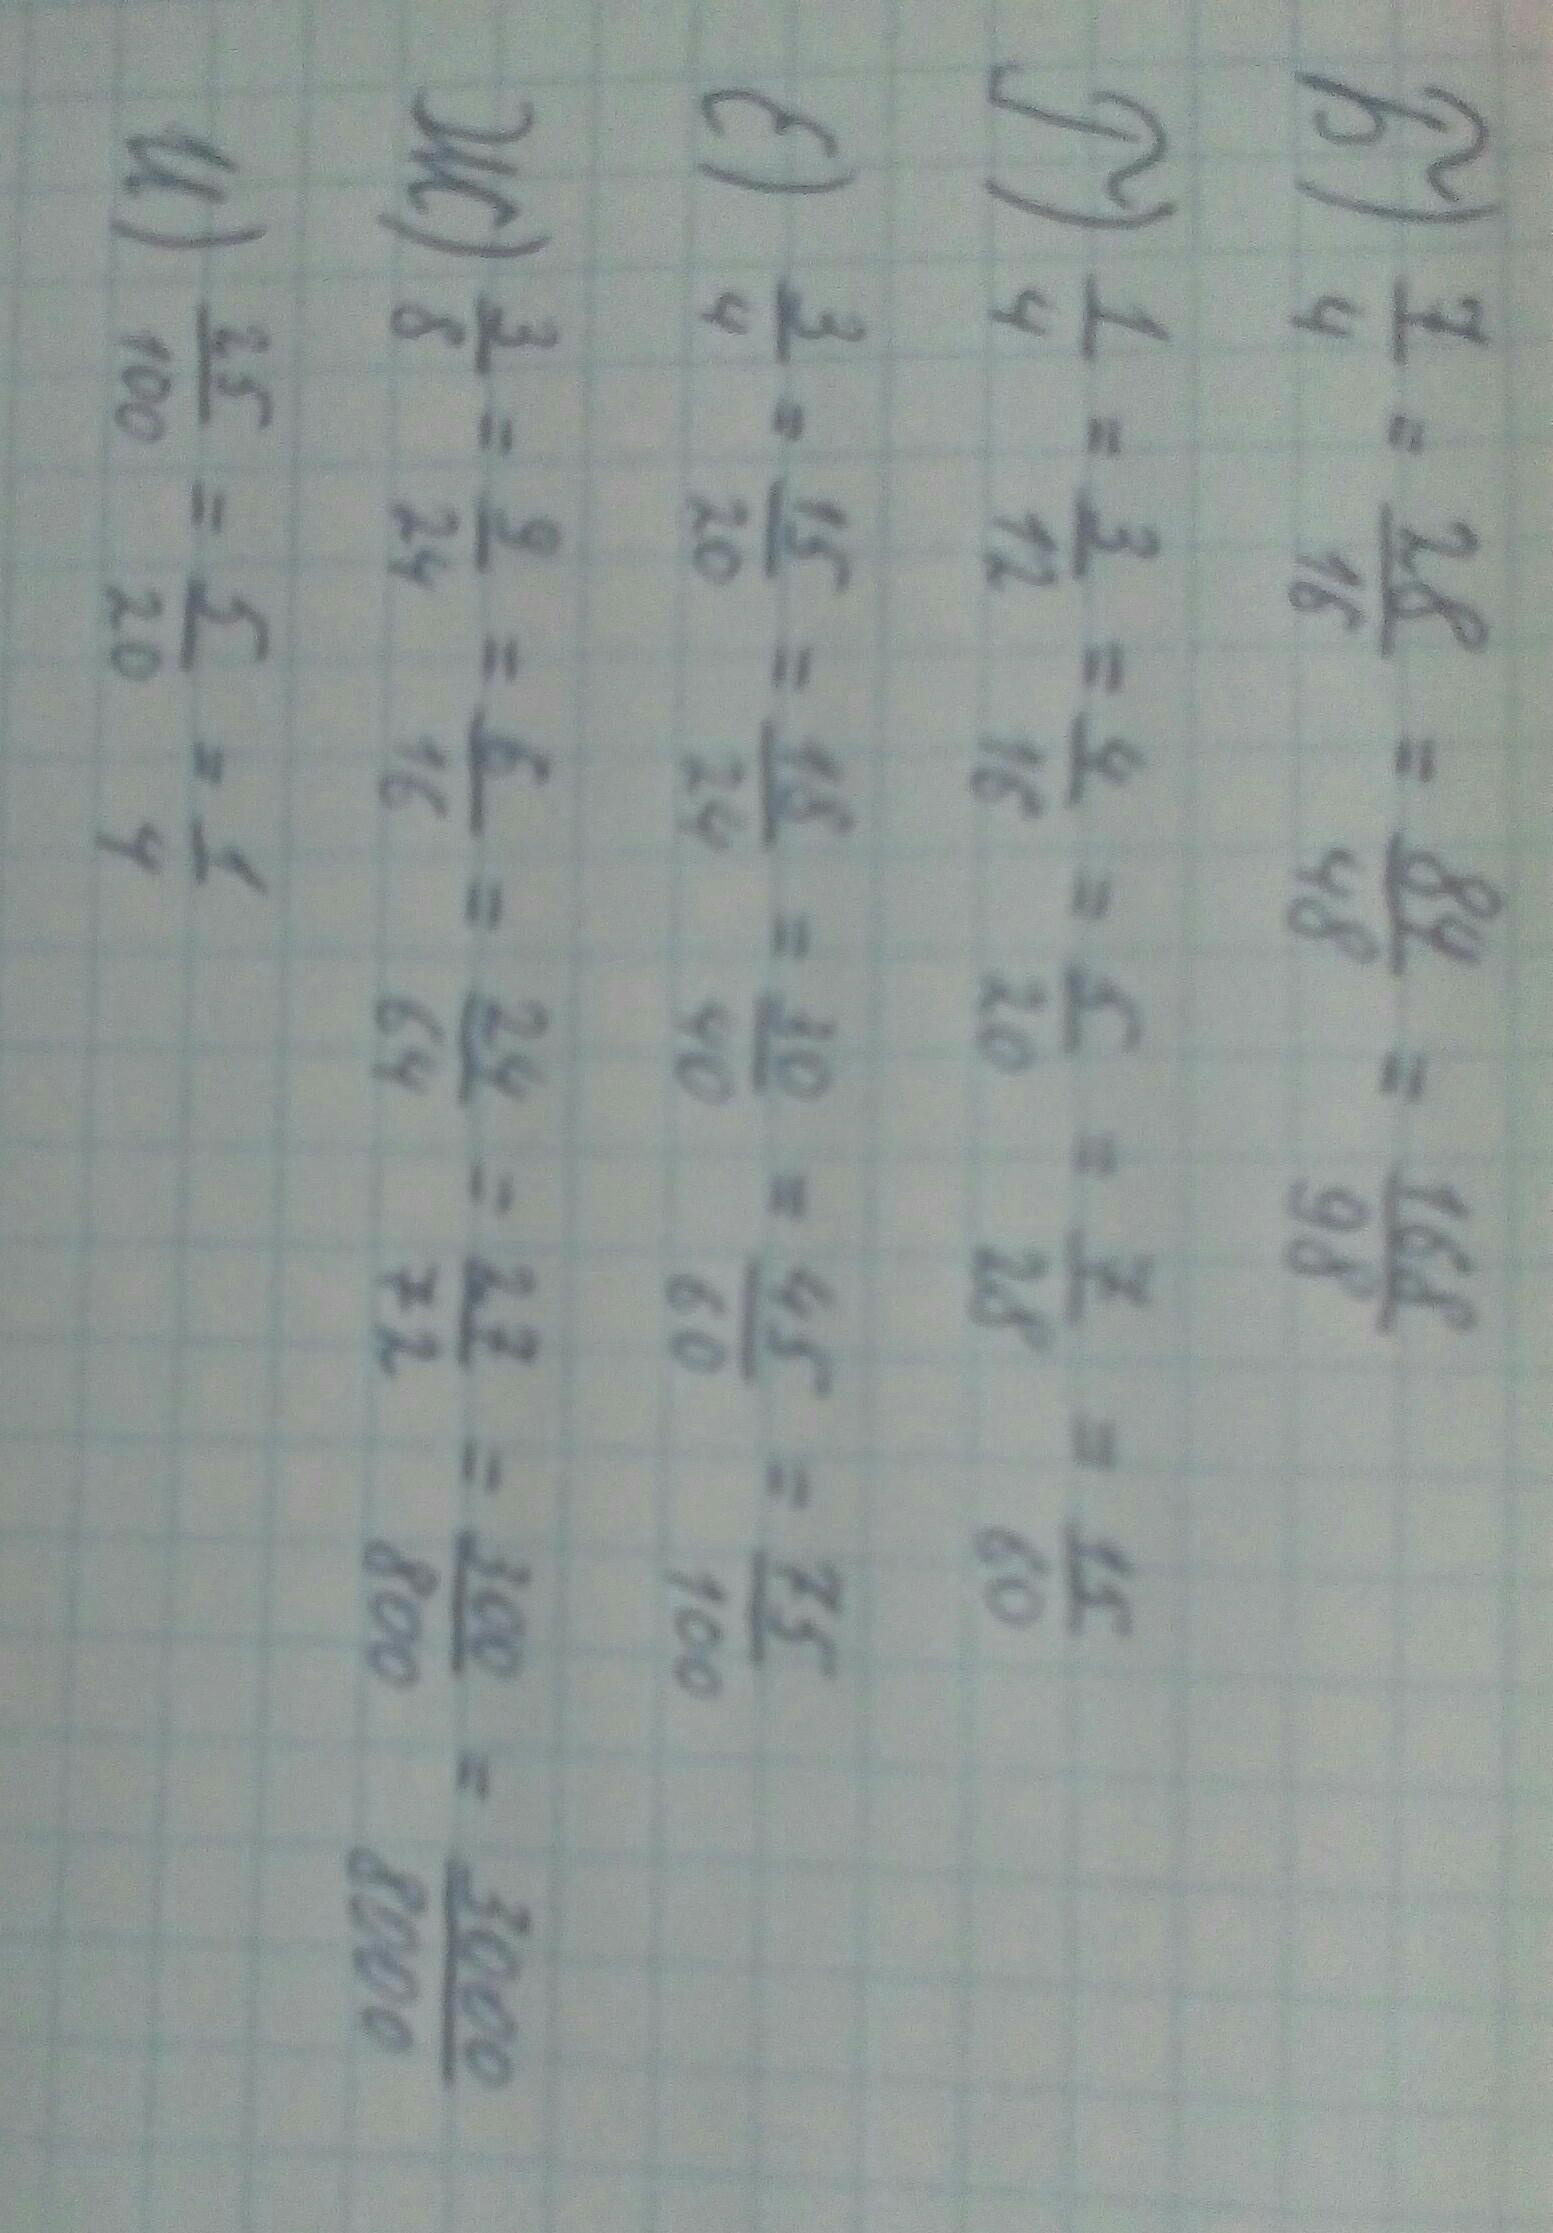 Б) 7/4 = 28/16 = 84/48 = 168/98
Г) 1/4 = 3/12 = 4/16 = 5/20 = 7/28 = 15/60
Е) 3/4 = 15/20 = 18/24 = 30/40 = 45/60 = 75/100
Ж) 3/8 = 9/24 = 6/16 = 24/64 = 27/72 = 300/800 = 3000/8000
И) 25/100 = 5/20 = 1/4